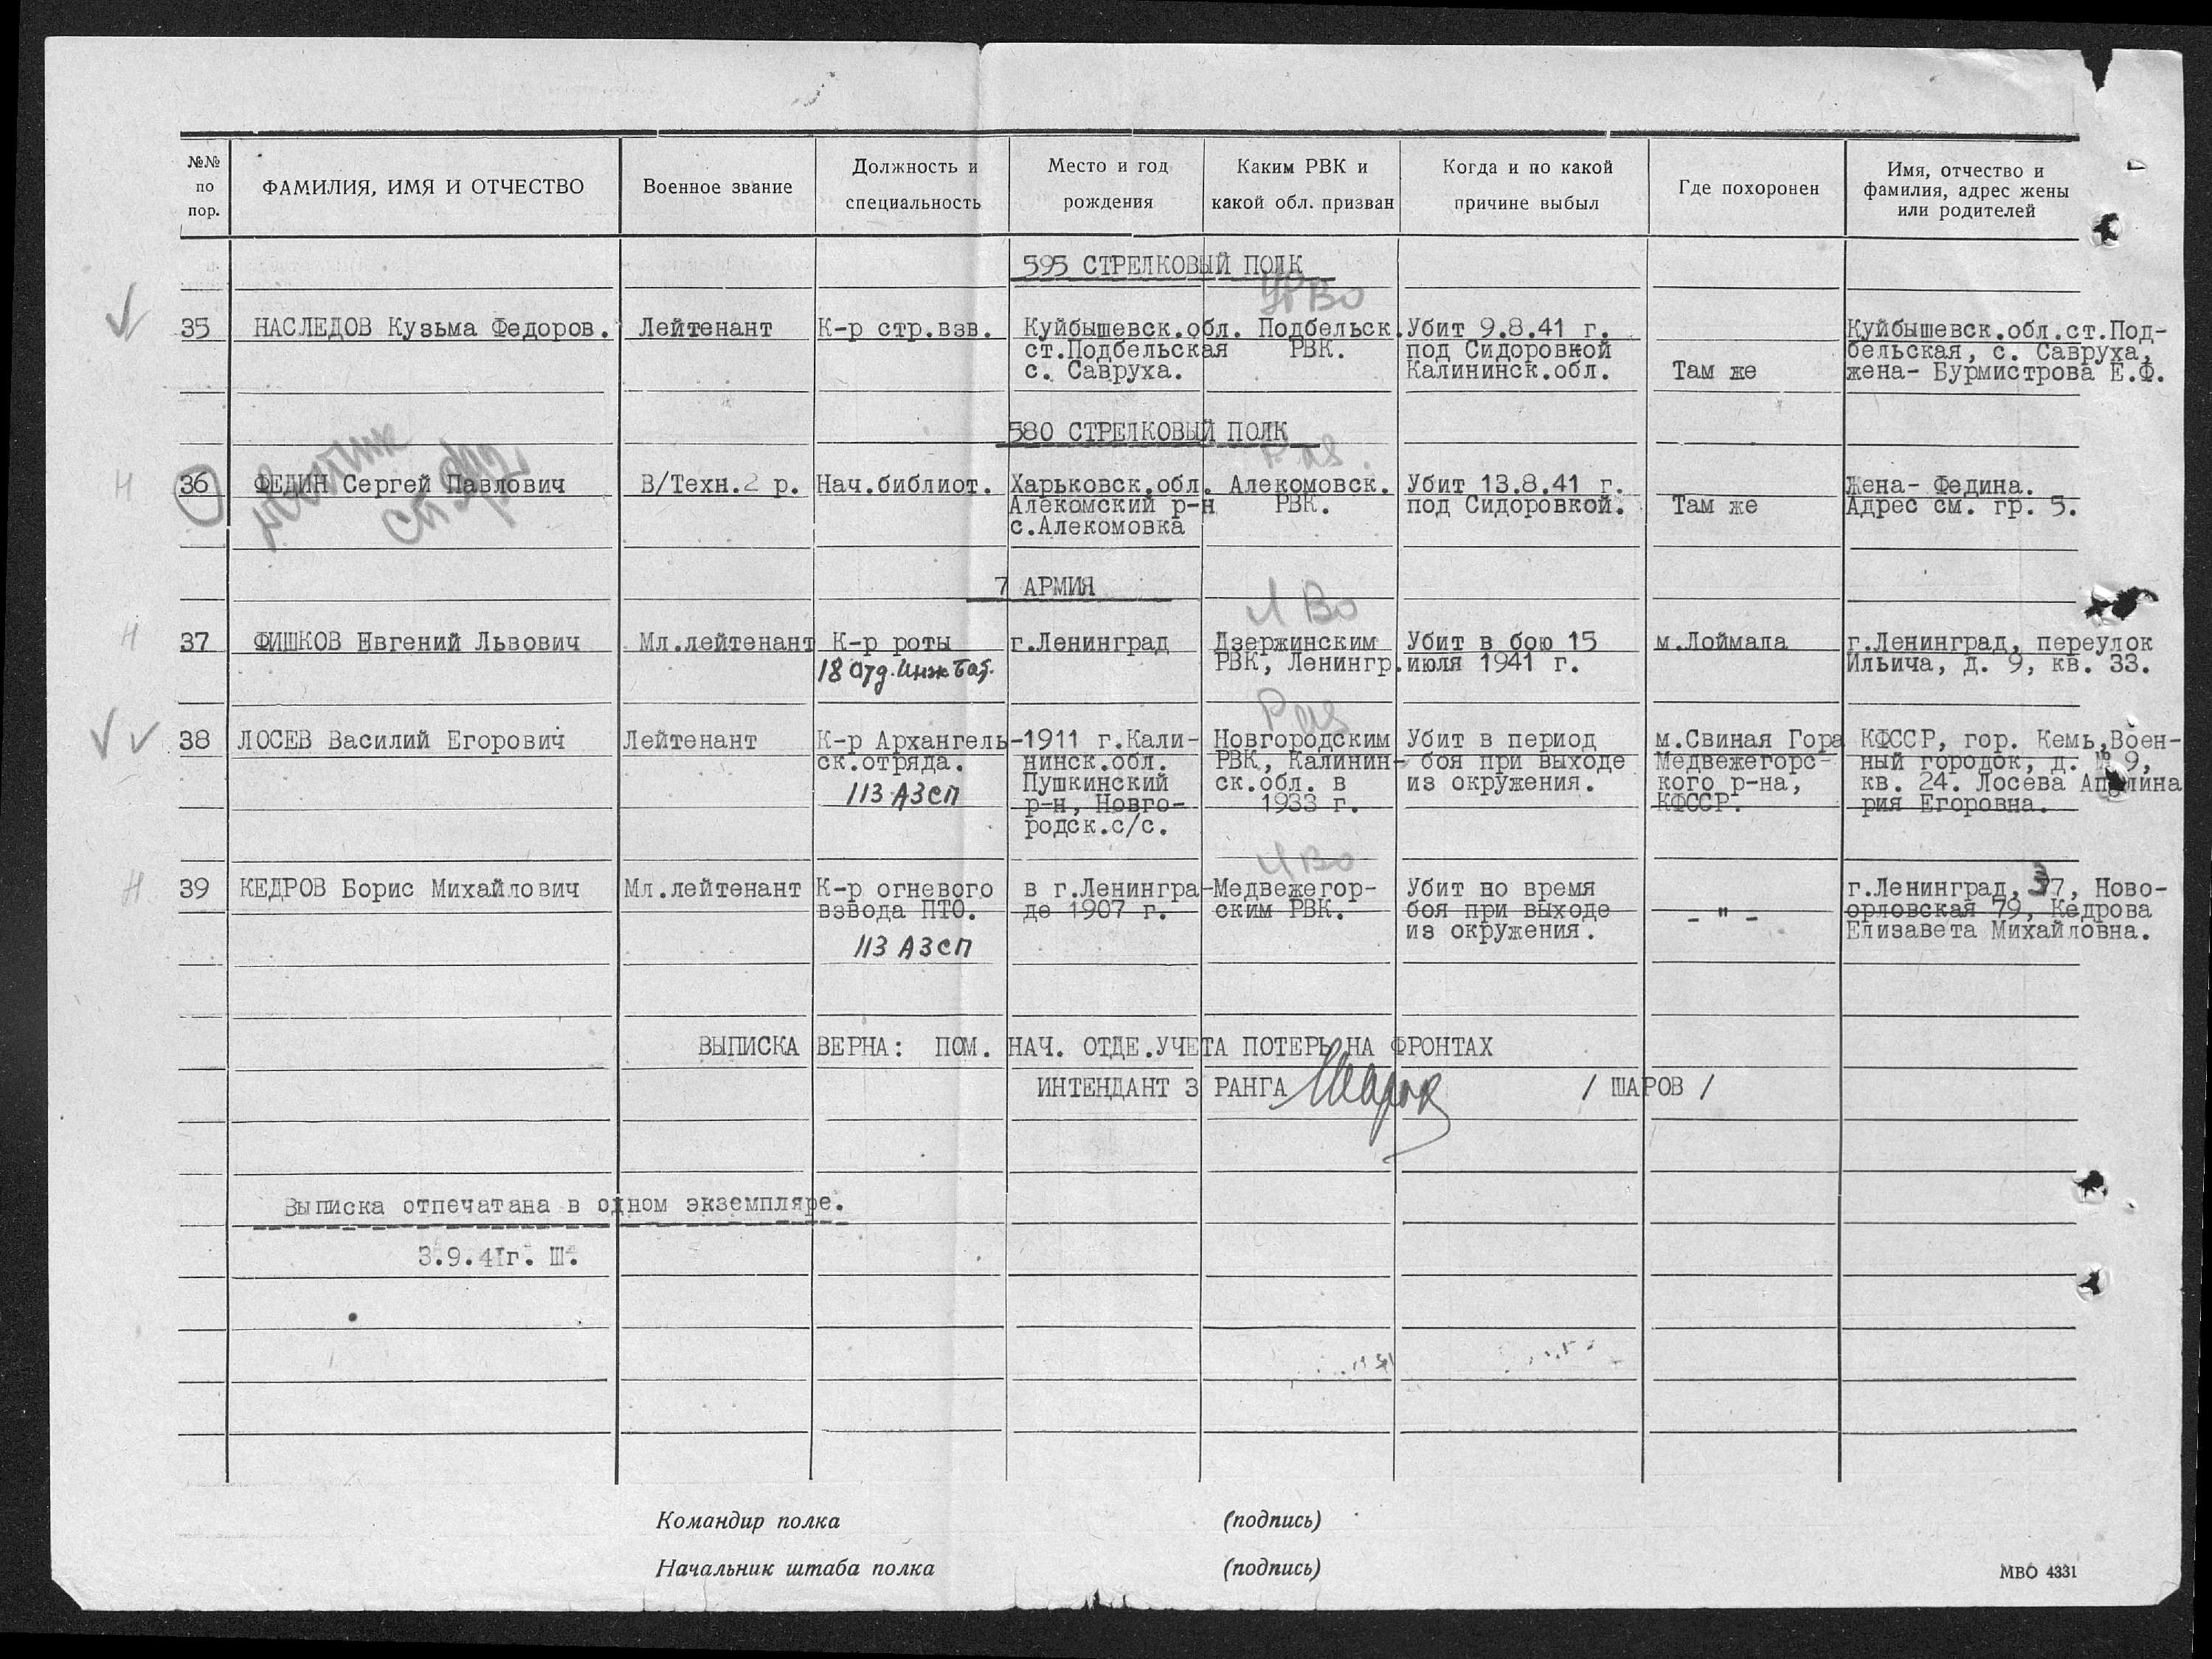 №№ по пор.
ФАМИЛИЯ, ИМЯ И ОТЧЕСТВО
Военное звание
Должность и специальность
Место и год рождения
Каким РВК и какой обл. призван
Когда и по какой причине выбыл
Где похоронен
Имя, отчество и фамилия, адрес жены или родителей
595 СТРЕЛКОВЫЙ ПОЛК
УрВо
35
НАСЛЕДОВ Кузьма Федоров.
Лейтенант
К-р стр.взв.
Куйбышевск.обл.
ст.Подбельская
с. Савруха.
Подбельск.
РВК.
Убит 9.8.41 г.
под Сидоровкой
Калининск.обл.
Там же
Куйбышевск.обл.ст.Под-
бельская, с. Савруха,
жена- Бурмистрова Е.Ф.
580 СТРЕЛКОВЫЙ ПОЛК
Н
36
ФЕДИН Сергей Павлович
В/Техн.2 р.
Нач.библиот.
Харьковск.обл.
Алекомский р-н
с.Алекомовка
Алекомовск.
РВК.
Убит 13.8.41 г.
под Сидоровкой.
Там же
Жена- Федина.
Адрес см. гр. 5.
7 АРМИЯ
ЛВо
Н
37
ФИШКОВ Евгений Львович
Мл.лейтенант
К-р роты
18 отд.инж бат.
г.Ленинград
Дзержинским
РВК, Ленингр.
Убит в бою 15
июля 1941 г.
м.Лоймала
г.Ленинград, переулок
Ильича, д. 9, кв. 33.
38
ЛОСЕВ Василий Егорович
Лейтенант
К-р Архангель-
ск.отряда.
113 АЗСП
1911 г.Кали-
нинск.обл.
Пушкинский
р-н, Новго-
родск.с/с.
Новгородским
РВК, Калинин-
ск.обл. в
1933 г.
Убит в период
боя при выходе
из окружения.
м.Свиная Гора
Медвежегорс-
кого р-на,
КФССР.
КФССР, гор. Кемь,Воен-
ный городок, д. № 9,
кв. 24. Лосева
рия Егоровна.
ЛВо
Н
39
КЕДРОВ Борис Михайлович
Мл.лейтенант
К-р огневого
взвода ПТО.
113 АЗСП
в г.Ленингра-
де 1907 г.
Медвежегор-
ским РВК.
Убит во время
боя при выходе
из окружения.
- " -
г.Ленинград, 37, Ново-
орловская 79, Кедрова
Елизавета Михайловна.
ВЫПИСКА ВЕРНА: ПОМ. НАЧ. ОТДЕ.УЧЕТА ПОТЕРЬ НА ФРОНТАХ
ИНТЕНДАНТ 3 РАНГА Шаров / ШАРОВ /
Выписка отпечатана в одном экземпляре.
3.9.41г. Ш.
Командир полка (подпись)
Начальник штаба полка (подпись)
МВО 4331